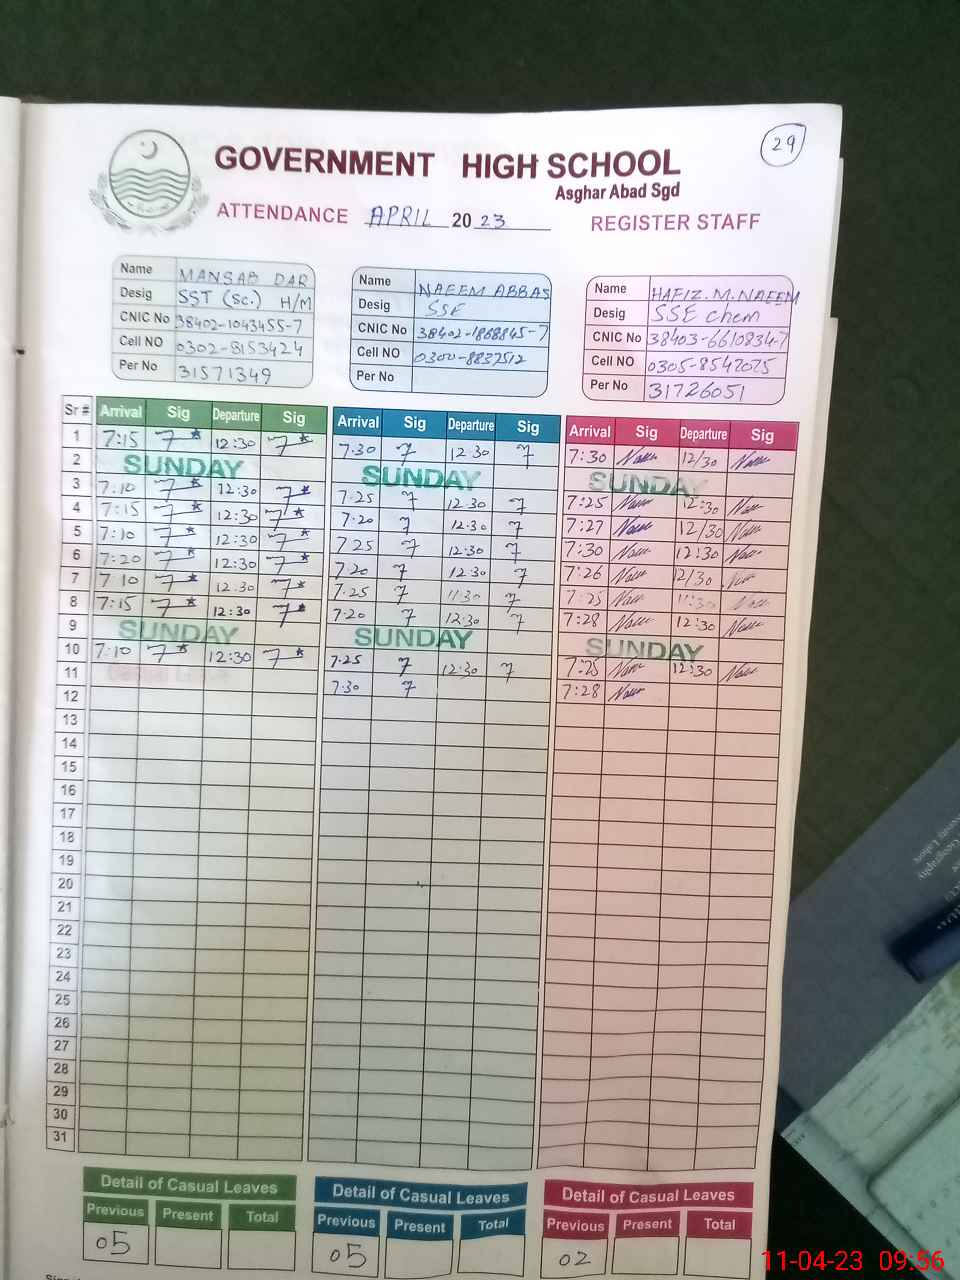 29
GOVERNMENT HIGH SCHOOL
Asghar Abad Sgd
ATTENDANCE APRIL 2023 REGISTER STAFF
Name MANSAB DAR
Desig SST (Sc.) H/M
CNIC No 38402-1043455-7
Cell NO 0302-8153424
Per No 31571349
Name NAEEM ABBAS
Desig SSE
CNIC No 38402-1868845-7
Cell NO 0300-8837512
Per No
Name HAFIZ.M.NAEEM
Desig SSE Chem
CNIC No 38403-6610834-7
Cell NO 0305-8542025
Per No 31726051
Sr # Arrival Sig Departure Sig Arrival Sig Departure Sig Arrival Sig Departure Sig
1 7:15 12:30 7.30 12 30 7:30 12/30
2 SUNDAY SUNDAY SUNDAY
3 7:10 12:30 7.25 12.30 7:25 12:30
4 7:15 12:30 7.20 12.30 7:27 12/30
5 7:10 12:30 7 25 12:30 7:30 12:30
6 7:20 12:30 7.20 12.30 7:26 12/30
7 7 10 12.30 7.25 11:30 7:25 11:30
8 7:15 12:30 7.20 12:30 7:28 12:30
9 SUNDAY SUNDAY SUNDAY
10 7:10 12:30 7.25 12:30 7:25 12:30
11 7.30 7:28
12
13
14
15
16
17
18
19
20
21
22
23
24
25
26
27
28
29
30
31
Detail of Casual Leaves Detail of Casual Leaves Detail of Casual Leaves
Previous Present Total Previous Present Total Previous Present Total
05 05 02
11-04-23 09:56